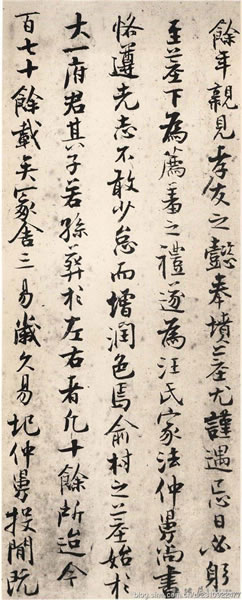 餘年親見孝友之懿奉墳㙛尤謹遇忌日必躬
至㙛下為薦羞之禮遂為汪氏家法仲舉尚書
恪遵先志不敢少怠而增潤色焉俞村之㙛始於
大一府君其子若孫葬於左右者凡十餘所迄今
百七十餘載矣冢舍三易歲久易圮仲舉投閒既